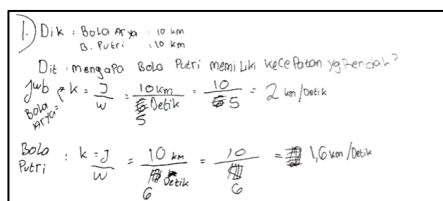 1. Dik : Bola Arya : 10 km
B. Putri : 10 km
Dit : mengapa Bola Putri memiliki kecepatan yg rendah?
Jwb
Bola Arya : k = J/W = 10 km/5 Detik = 10/5 = 2 km/Detik
Bola Putri : k = J/W = 10 km/6 Detik = 10/6 = 1,6 km/Detik